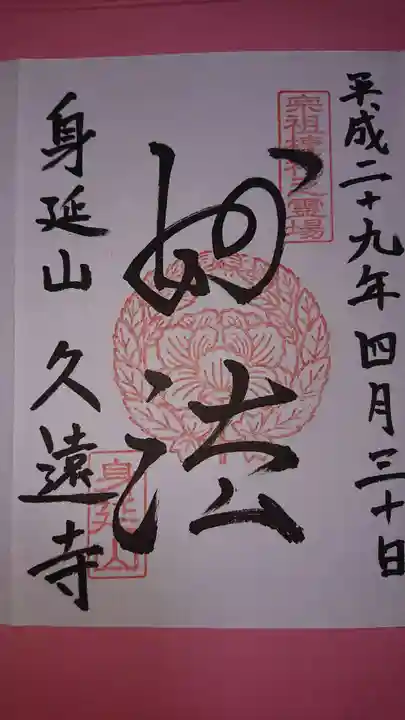 平成二十九年四月三十日
宗祖棲神之霊場
妙法
身延山
身延山 久遠寺